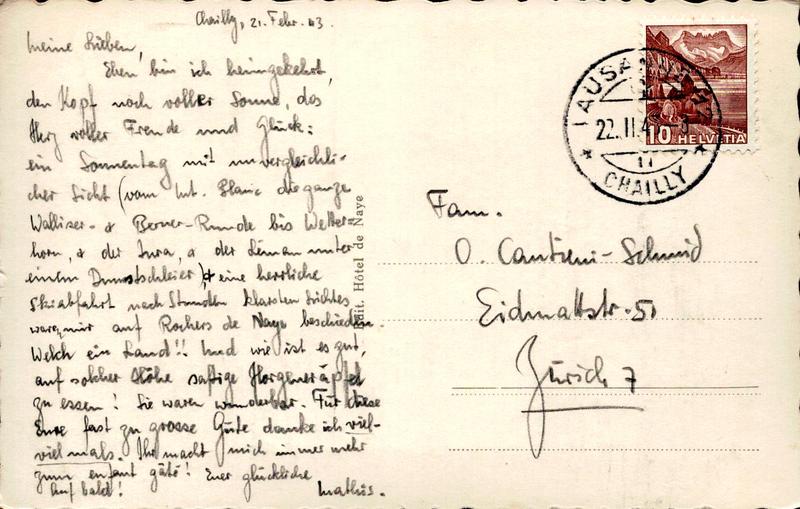 Chailly, 21. Febr. 43.
Meine Lieben,
Eben bin ich heimgekehrt,
den Kopf noch voller Sonne, das
Herz voller Freude und Glück:
ein Sonnentag mit unvergleichli-
cher Sicht (vom Mt. Blanc die ganze
Walliser- & Berner-Runde bis Wetter-
horn, & der Jura, & der Léman unter
einem Dunstschleier) & eine herrliche
Skiabfahrt nach Stunden klarsten Lichtes
waren mir auf Rochers de Naye beschieden.
Welch ein Land!! Und wie ist es gut,
auf solcher Höhe saftige Horgeneräpfel
zu essen! Sie waren wunderbar. Für diese
Eure fast zu grosse Güte danke ich viel-
viel mals. Ihr macht mich immer mehr
zum enfant gâté! Euer glückliche
Auf bald! Mathis.
Edit. Hôtel de Naye
LAUSANNE 12
22.II.4
CHAILLY
10 HELVETIA
Fam.
O. Cantieni-Schmid
Eidmattstr. 51
Zürich 7